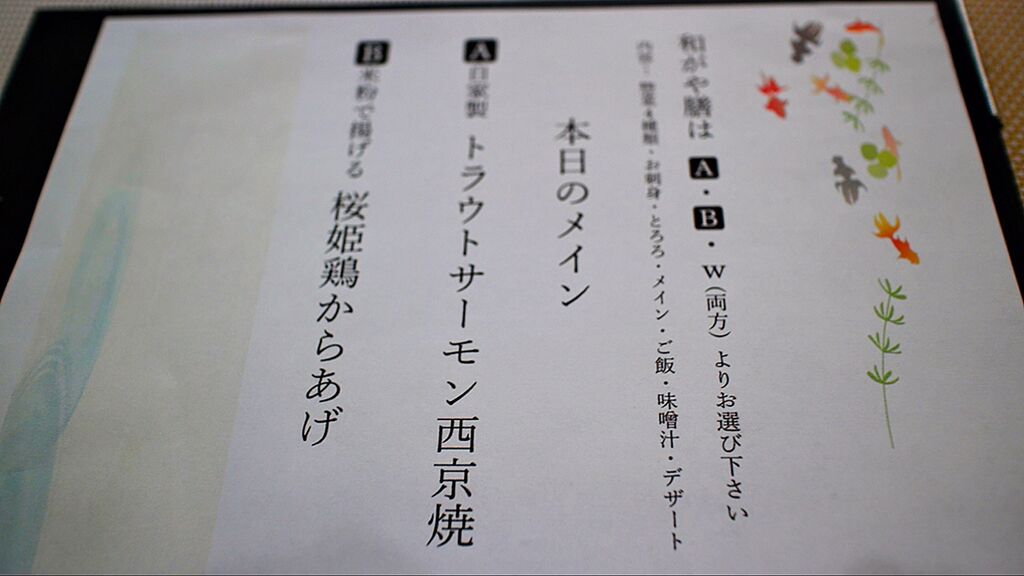 和がや膳は A・B・W(両方)よりお選び下さい
内容:惣菜4種類・お刺身・とろろ・メイン・ご飯・味噌汁・デザート
本日のメイン
A 自家製 トラウトサーモン西京焼
B 米粉で揚げる 桜姫鶏からあげ